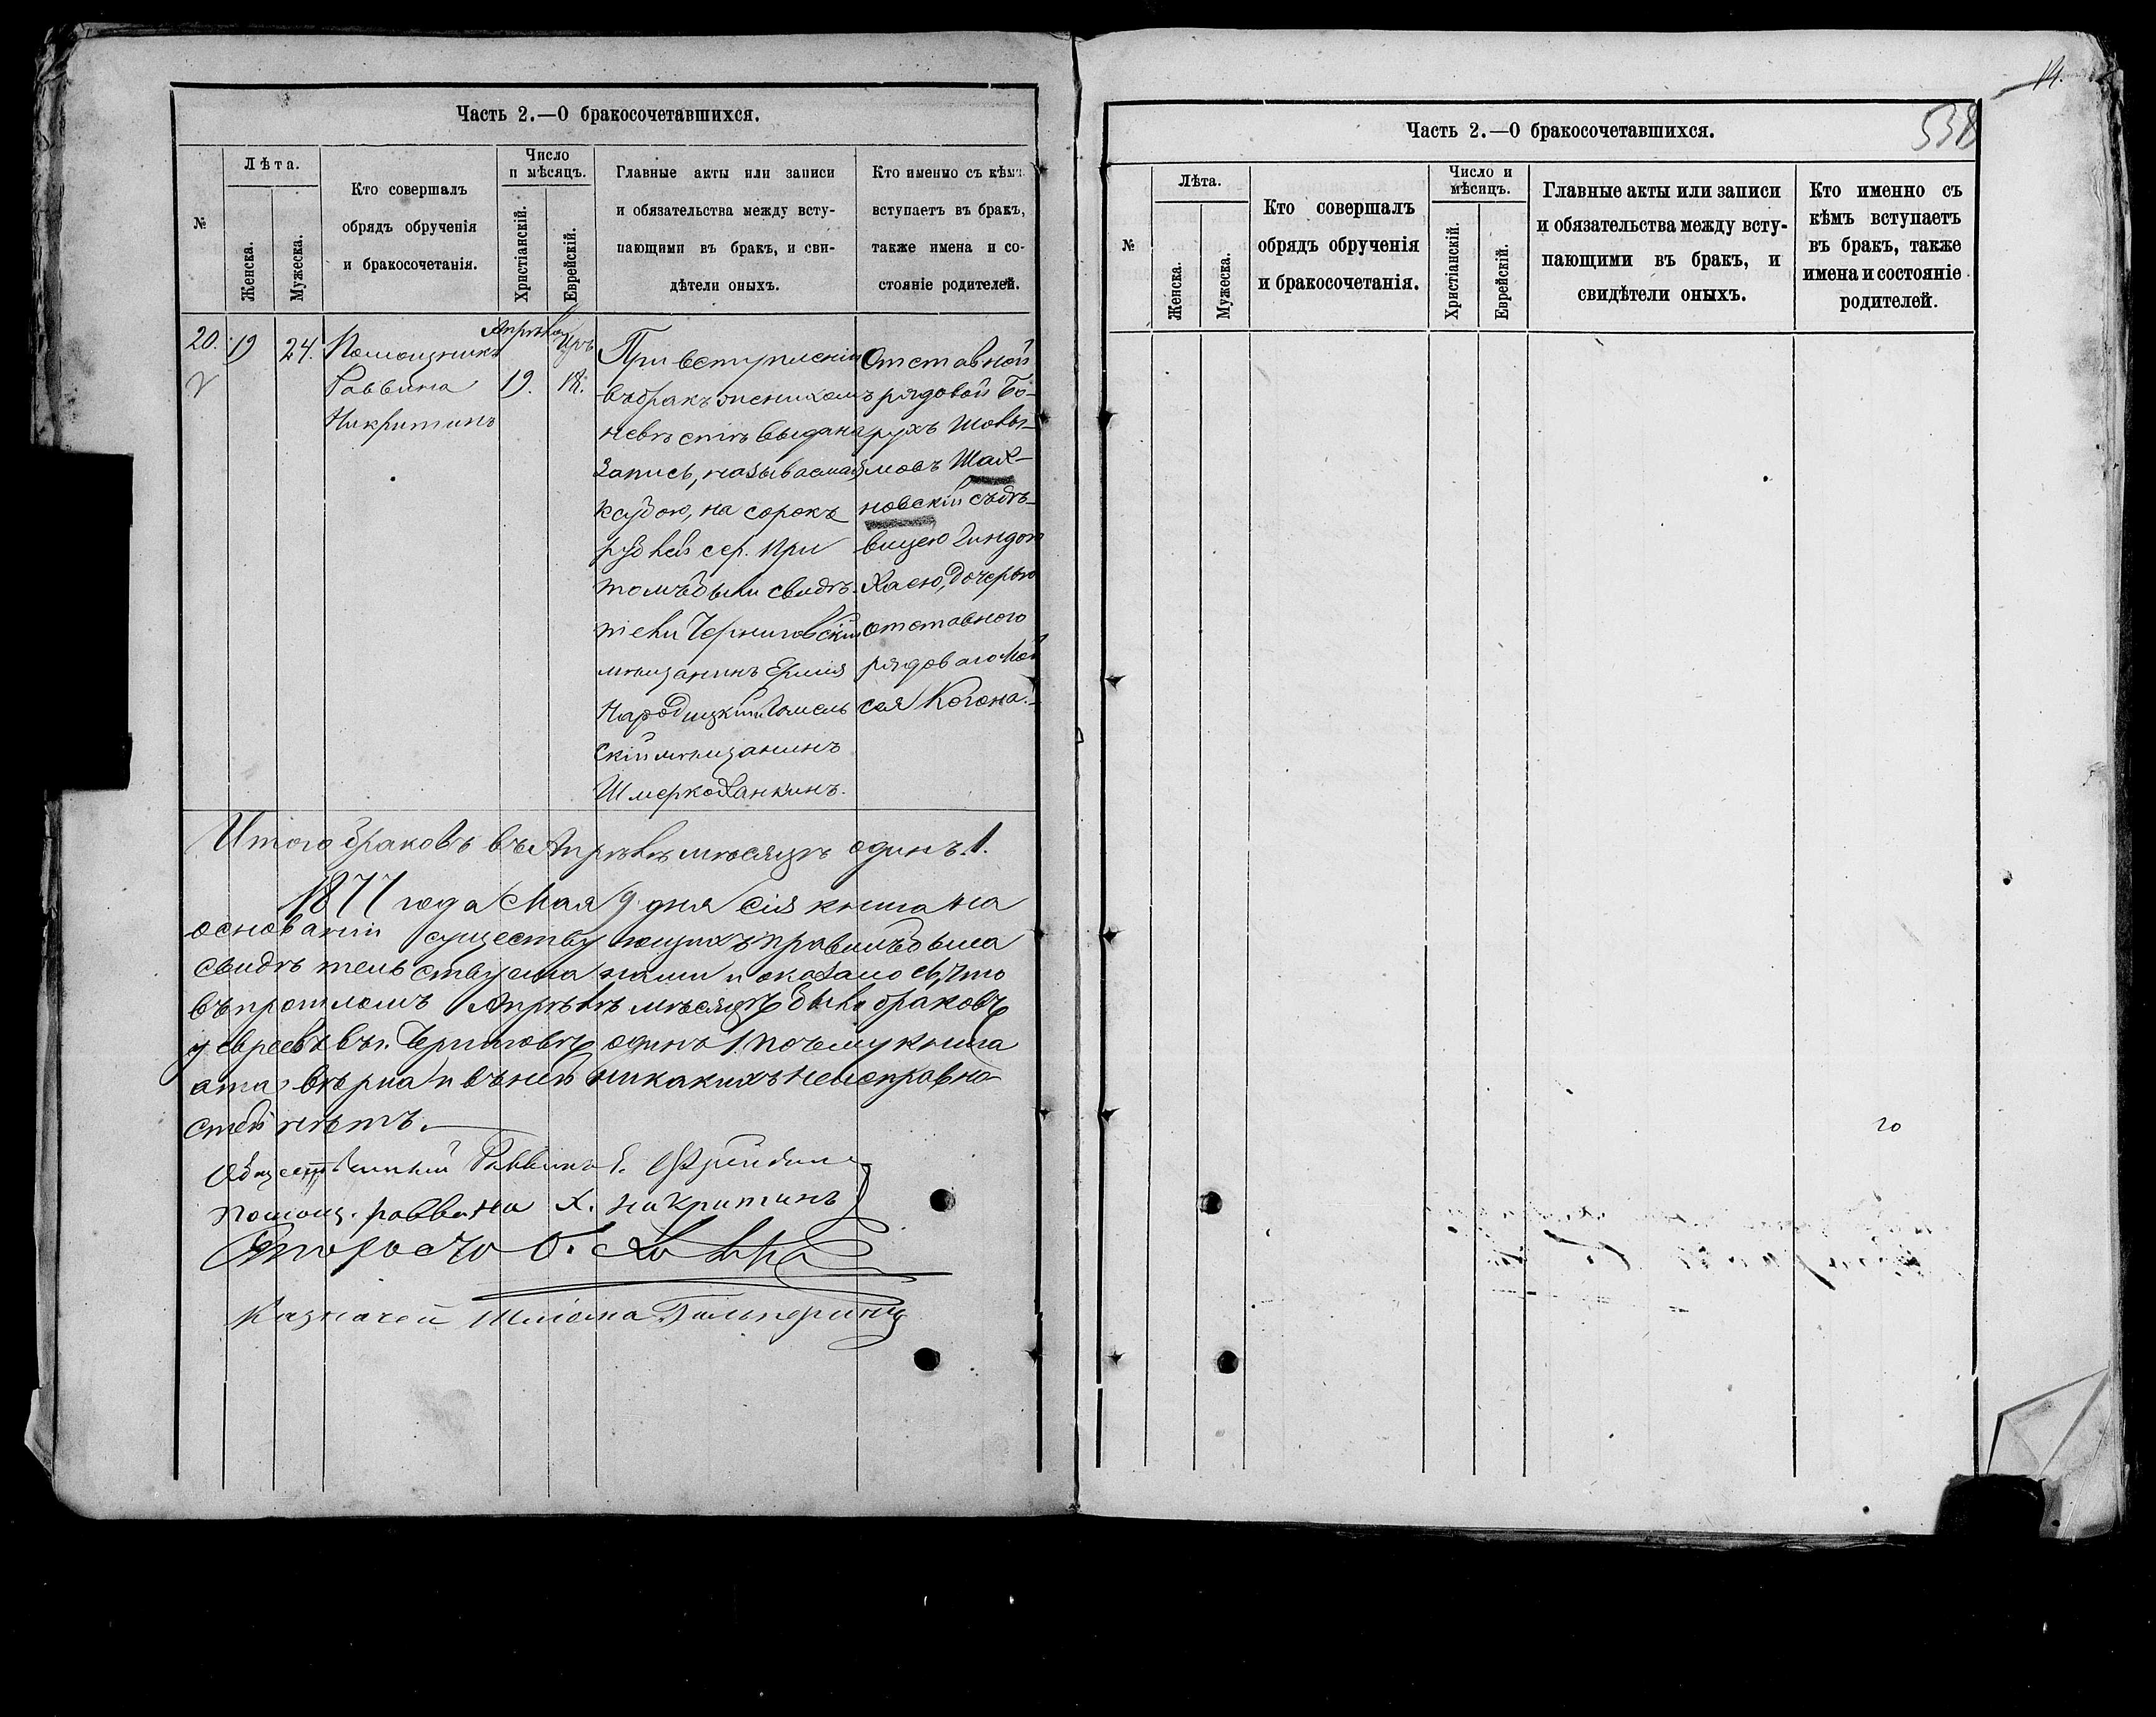 Часть 2.—О бракосочетавшихся.
№
Лѣта.
Женска.
Мужеска.
Кто совершалъ
обрядъ обрученія
и бракосочетанія.
Число
и мѣсяцъ.
Христіанскій.
Еврейскій.
Главные акты или записи
и обязательства между всту-
пающими въ бракъ, и сви-
дѣтели оныхъ.
Кто именно съ кѣмъ
вступаетъ въ бракъ,
также имена и со-
стояніе родителей.
20.
19
24.
Помощникъ
Раввина
Никритинъ
Апрѣля
19.
Иръ
18.
При вступленіи
въ бракъ женихомъ
невѣстѣ выдана
запись, называемая
ксубою, на сорокъ
рублей сер. При
томъ были свидѣ-
тели Черниговскій
мѣщанинъ
Народицкій и Гомель
скій мѣщанинъ
Шмерко Ханкинъ.
Отставной
рядовой Бо-
рухъ
мовъ Шах-
новскій съ дѣ-
вицею Гиндою
Хаею, дочерью
отставного
рядоваго Мов
сея Когона.
Итого браковъ въ Апрѣлѣ мѣсяцѣ одинъ. 1.
1877 года Мая 9 дня сія книга на
основаніи существующихъ правилъ была
свидѣтельствуема нами и оказалось, что
въ прошломъ Апрѣлѣ мѣсяцѣ было браковъ
у евреевъ въ г. Черниговѣ одинъ 1. почему книга
эта вѣрна и въ ней никакихъ неисправно-
стей нѣтъ.
Общественный Раввинъ
Помощ. раввина Х. Никритинъ
Казначей Шліома Гальперинъ
14.
538
Часть 2.—О бракосочетавшихся.
№
Лѣта.
Женска.
Мужеска.
Кто совершалъ
обрядъ обрученія
и бракосочетанія.
Число и
мѣсяцъ.
Христіанскій.
Еврейскій.
Главные акты или записи
и обязательства между всту-
пающими въ бракъ, и
свидѣтели оныхъ.
Кто именно съ
кѣмъ вступаетъ
въ бракъ, также
имена и состояніе
родителей.